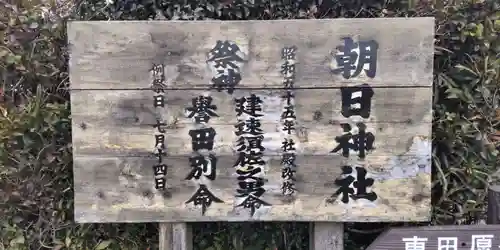 朝日神社
昭和五十五年 社殿改修
祭神
建速須佐之男命
誉田別命
例祭日 七月十四日